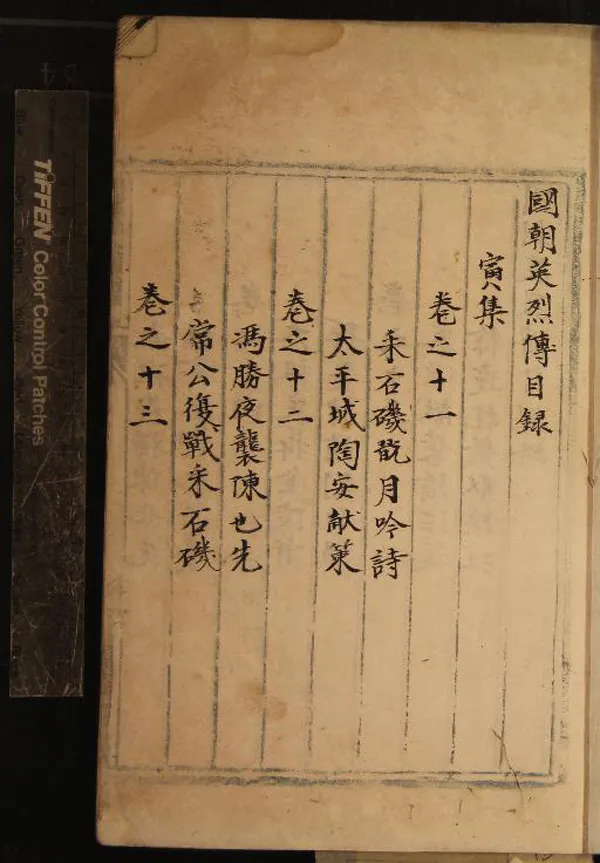 國朝英烈傳目録
寅集
卷之十一
采石磯翫月吟詩
太平城陶安献策
卷之十二
馮勝夜襲陳也先
常公復戰采石磯
卷之十三
TIFFEN Color Control Patches